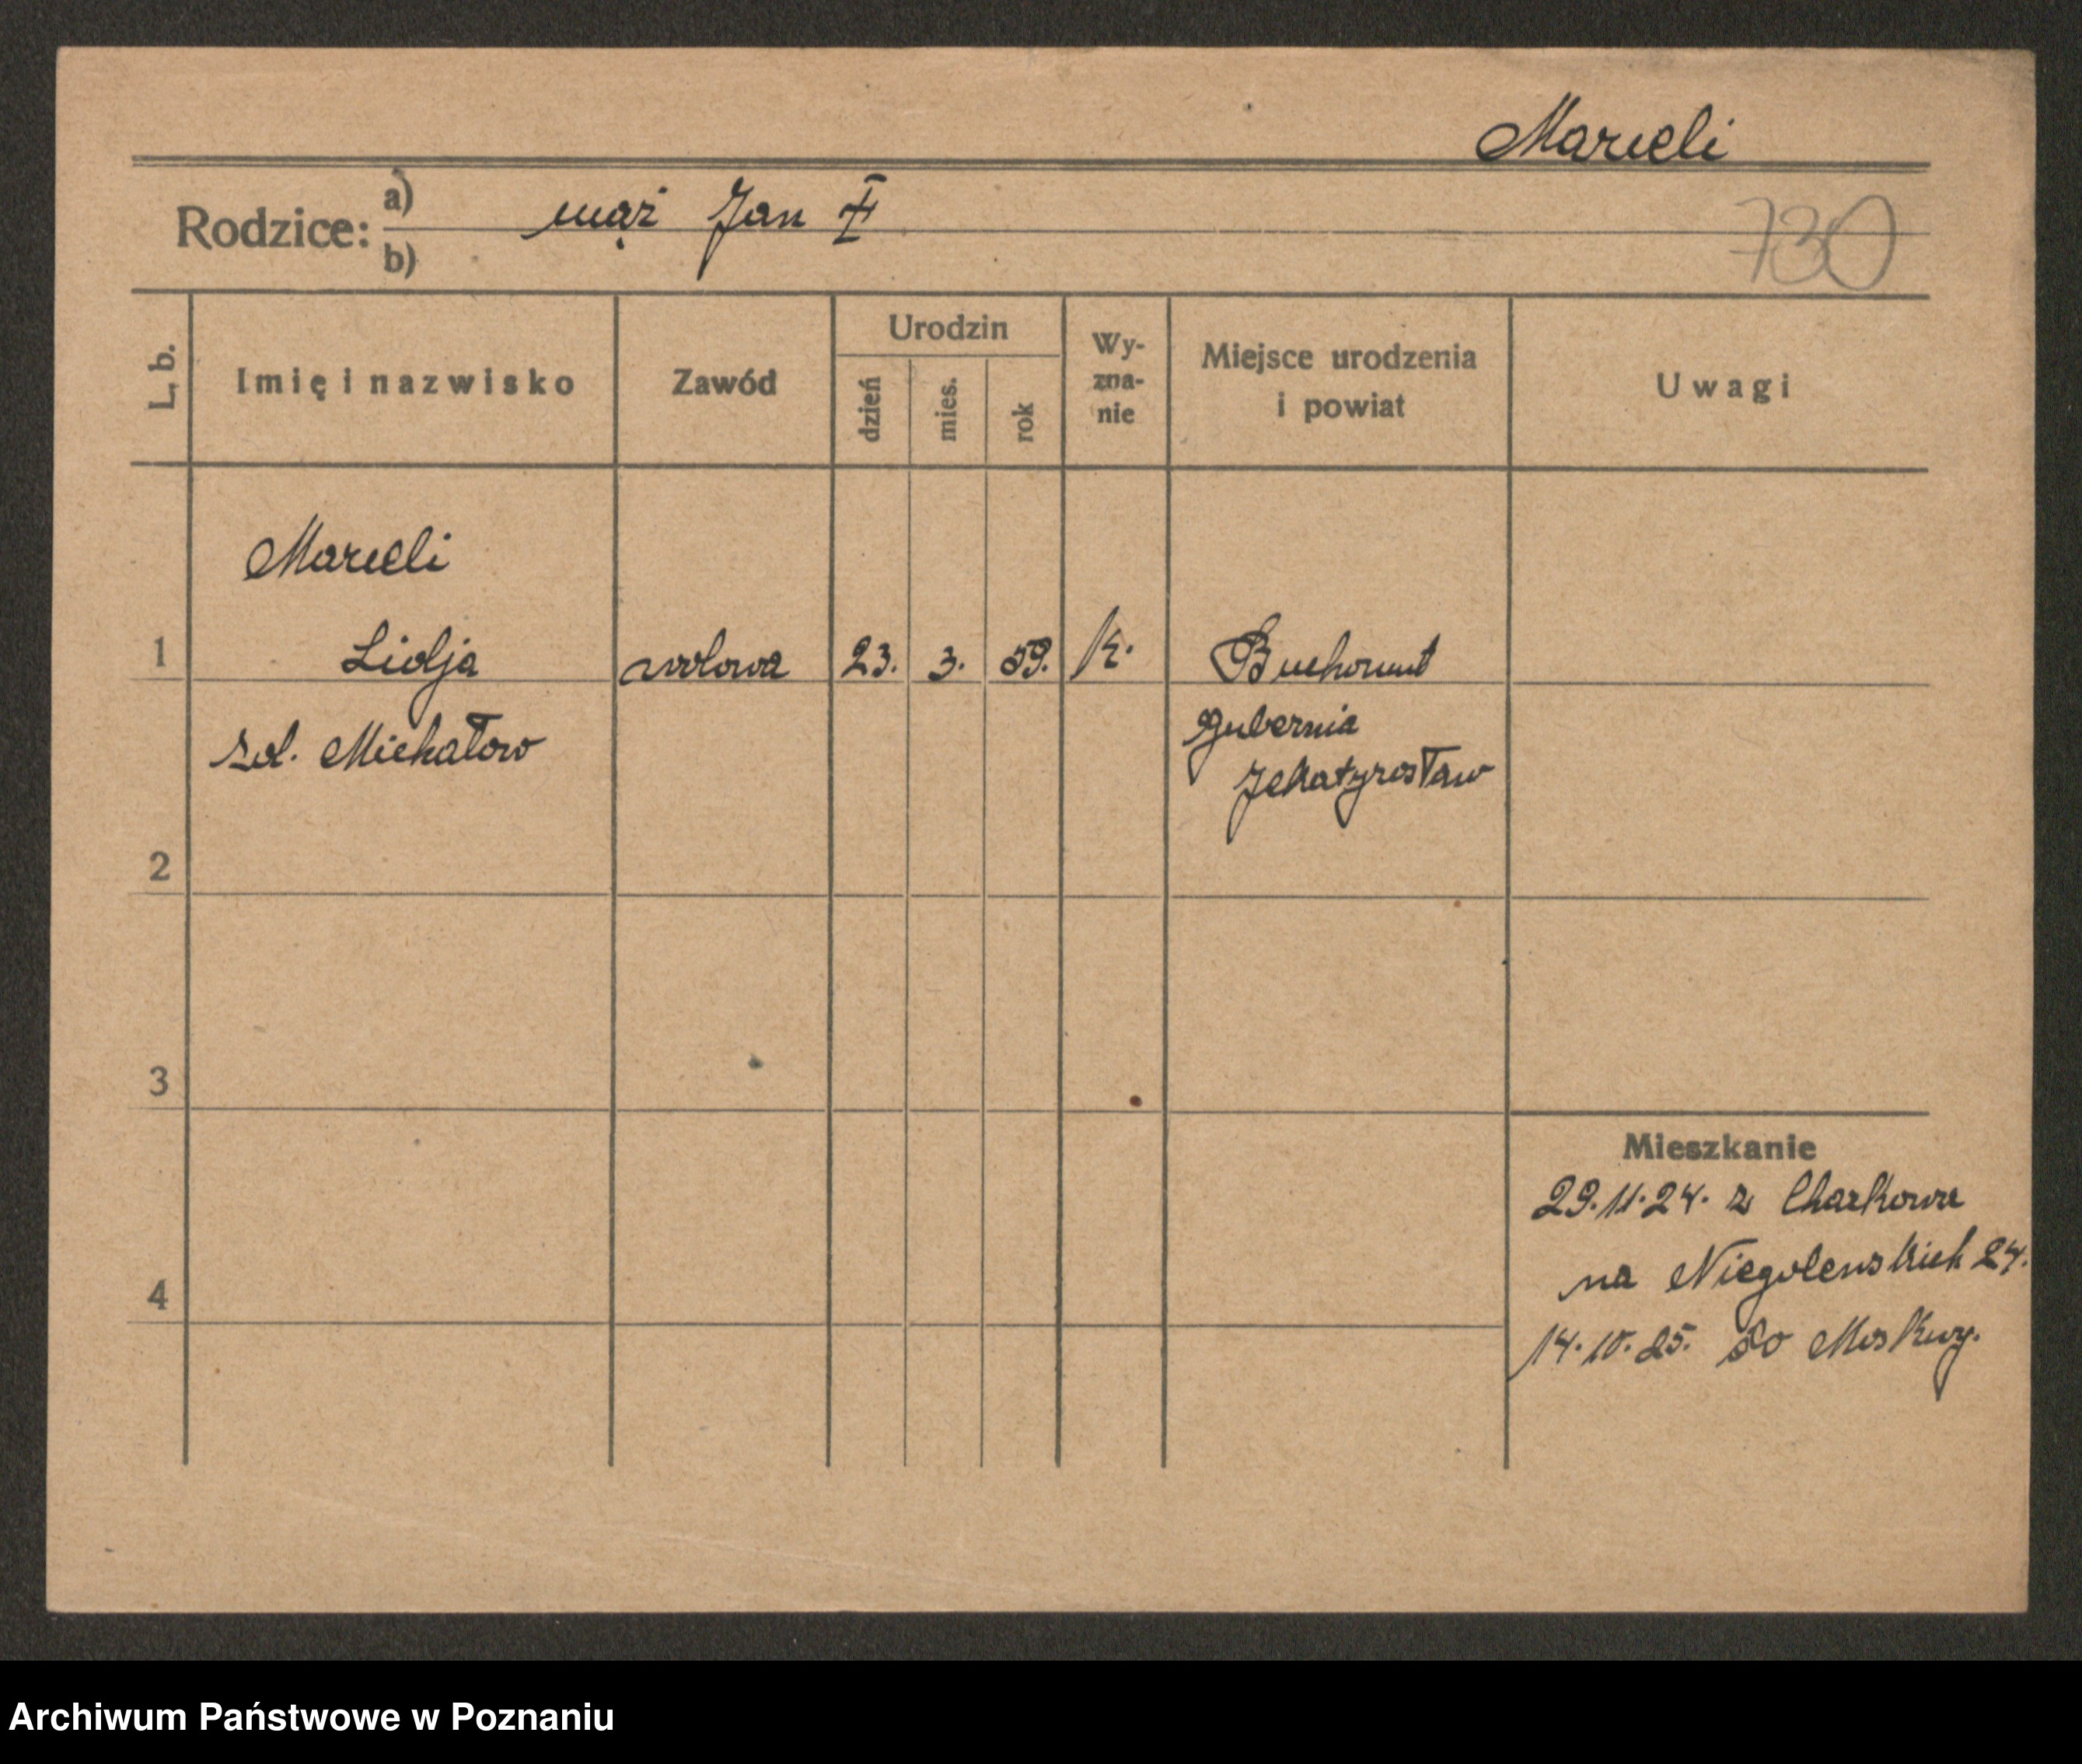 Marceli
Rodzice: a) mąż Jan
b)
730
L. b.
Imię i nazwisko
Zawód
Urodzin
dzień
mies.
rok
Wy-
zna-
nie
Miejsce urodzenia
i powiat
Uwagi
Marceli
1 Lidja wdowa 23. 3. 59. k.
zd. Michałow
gubernia
Jekatyrosław
2
3
4
Mieszkanie
29.11.24. z Charkowa
na Niegolewskich 24.
14.10.25. do Moskwy.
Archiwum Państwowe w Poznaniu